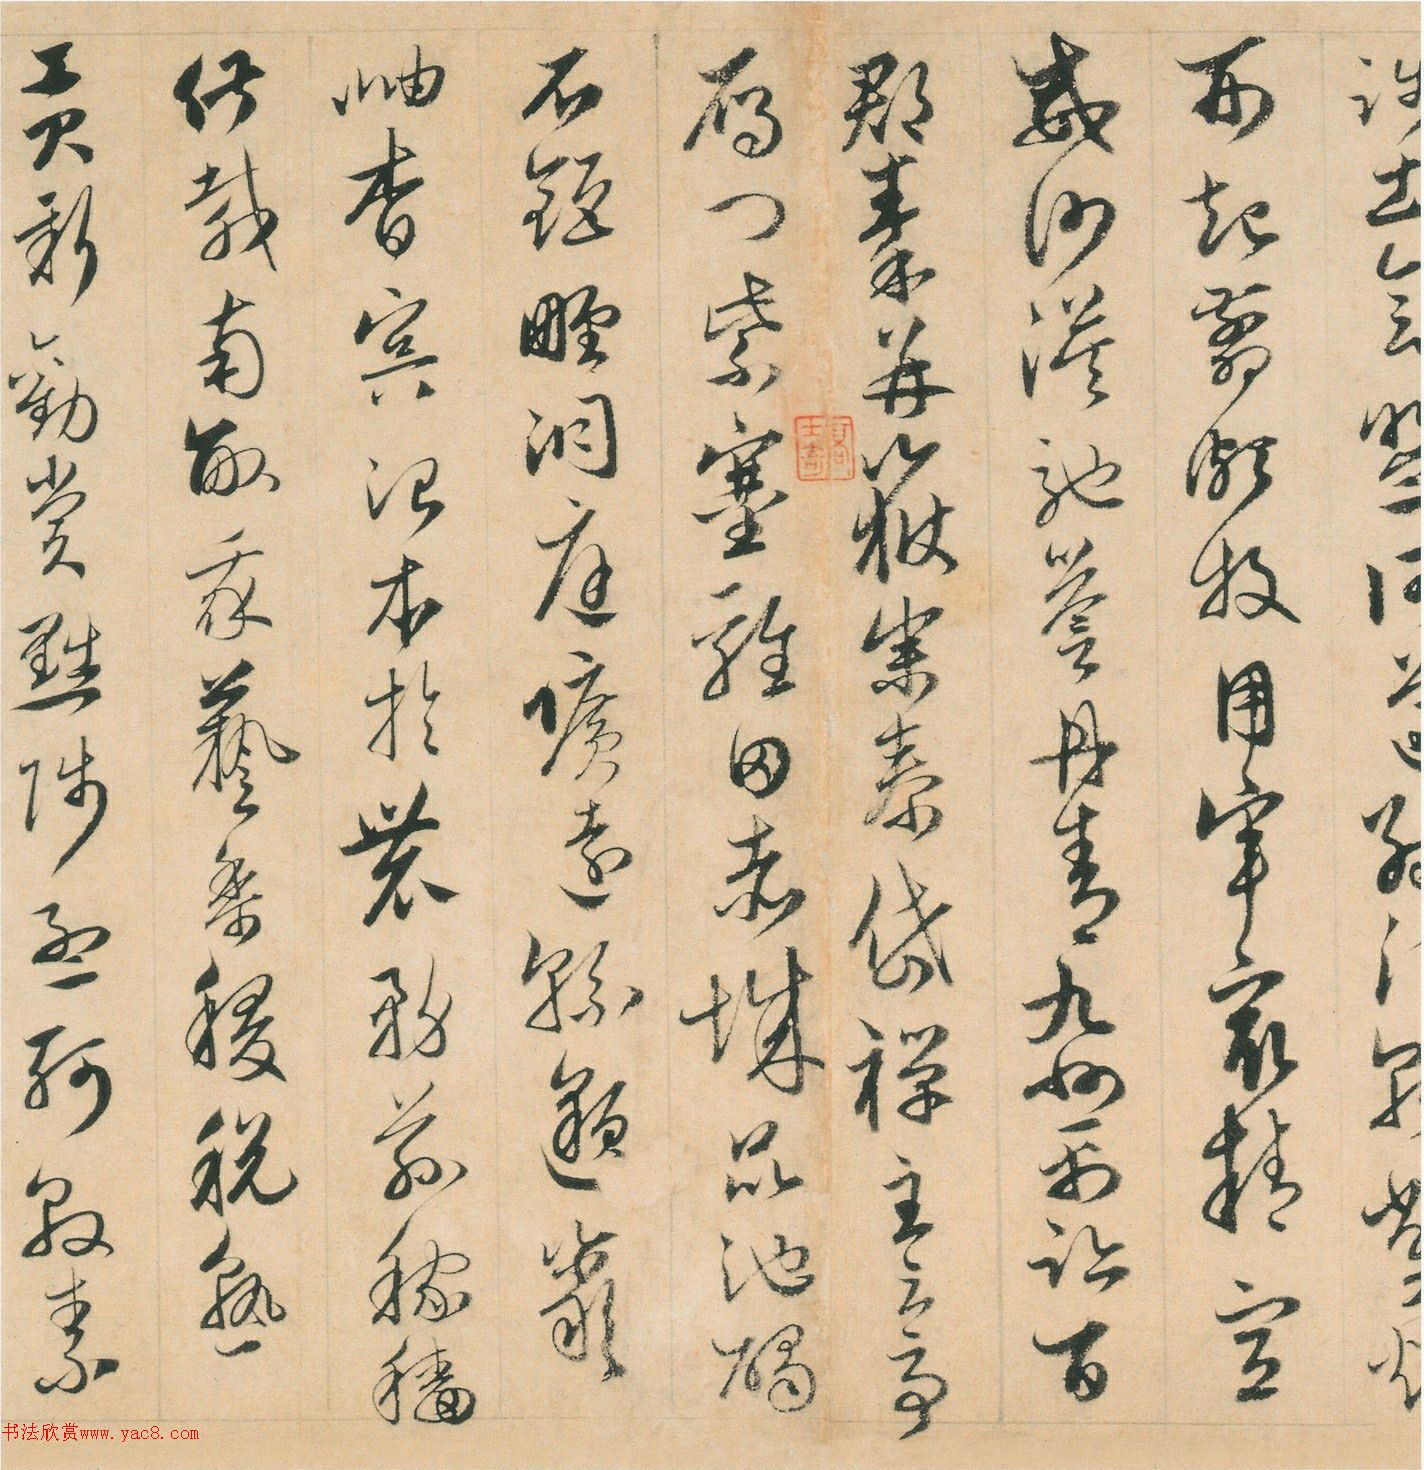 踐土會盟何遵約法韓弊煩
刑起翦頗牧用軍最精宣
威沙漠馳譽丹青九州禹跡百
郡秦并嶽宗泰岱禪主云亭
雁門紫塞雞田赤城昆池碣
石鉅野洞庭曠遠綿邈巖
岫杳冥治本於農務茲稼穡
俶載南畝我藝黍稷稅熟
貢新勸賞黜陟孟軻敦素
书法欣赏www.yac8.com